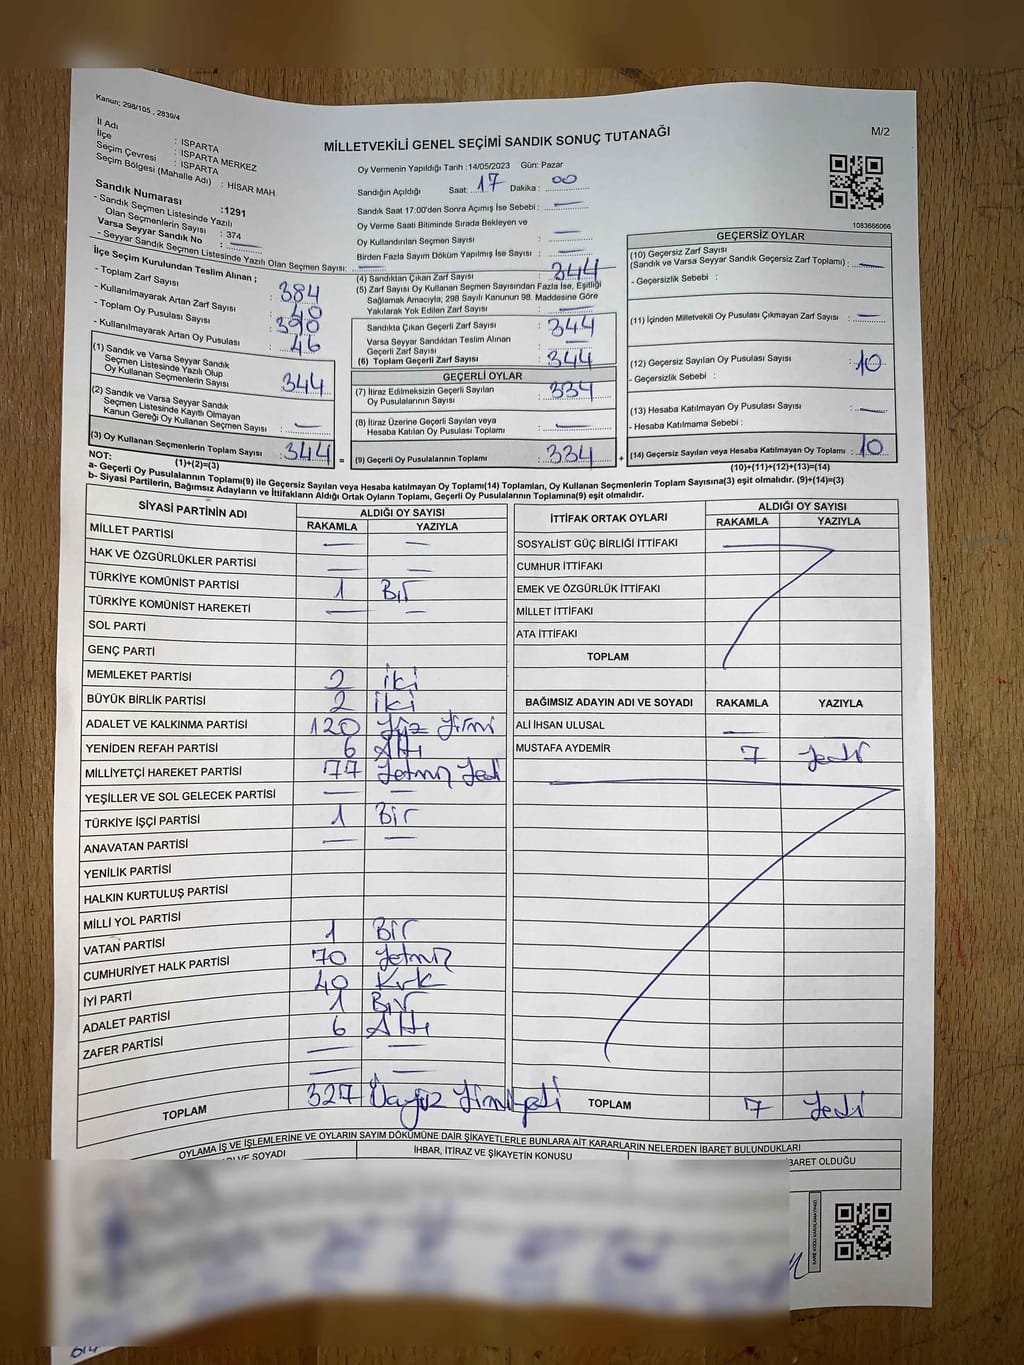 Kanun; 298/105 , 2839/4
MİLLETVEKİLİ GENEL SEÇİMİ SANDIK SONUÇ TUTANAĞI
M/2
İl Adı : ISPARTA
İlçe : ISPARTA MERKEZ
Seçim Çevresi : ISPARTA
Seçim Bölgesi (Mahalle Adı) : HİSAR MAH.
Sandık Numarası :1291
- Sandık Seçmen Listesinde Yazılı
Olan Seçmenlerin Sayısı : 374
Varsa Seyyar Sandık No :
- Seyyar Sandık Seçmen Listesinde Yazılı Olan Seçmen Sayısı:
İlçe Seçim Kurulundan Teslim Alınan ;
- Toplam Zarf Sayısı : 384
- Kullanılmayarak Artan Zarf Sayısı : 40
- Toplam Oy Pusulası Sayısı : 390
- Kullanılmayarak Artan Oy Pusulası : 46
(1) Sandık ve Varsa Seyyar Sandık
Seçmen Listesinde Yazılı Olup
Oy Kullanan Seçmenlerin Sayısı : 344
(2) Sandık ve Varsa Seyyar Sandık
Seçmen Listesinde Kayıtlı Olmayan
Kanun Gereği Oy Kullanan Seçmen Sayısı : —
(3) Oy Kullanan Seçmenlerin Toplam Sayısı : 344 =
(1)+(2)=(3)
Oy Vermenin Yapıldığı Tarih : 14/05/2023 Gün: Pazar
Sandığın Açıldığı Saat: 17 Dakika : 00
Sandık Saat 17:00'den Sonra Açımış İse Sebebi : —
Oy Verme Saati Bitiminde Sırada Bekleyen ve
Oy Kullandırılan Seçmen Sayısı : —
Birden Fazla Sayım Döküm Yapılmış İse Sayısı : —
(4) Sandıktan Çıkan Zarf Sayısı : 344
(5) Zarf Sayısı Oy Kullanan Seçmen Sayısından Fazla İse, Eşitliği
Sağlamak Amacıyla; 298 Sayılı Kanunun 98. Maddesine Göre
Yakılarak Yok Edilen Zarf Sayısı : —
Sandıkta Çıkan Geçerli Zarf Sayısı : 344
Varsa Seyyar Sandıktan Teslim Alınan
Geçerli Zarf Sayısı : —
(6) Toplam Geçerli Zarf Sayısı : 344
GEÇERLİ OYLAR
(7) İtiraz Edilmeksizin Geçerli Sayılan
Oy Pusulalarının Sayısı : 334
(8) İtiraz Üzerine Geçerli Sayılan veya
Hesaba Katılan Oy Pusulası Toplamı : —
(9) Geçerli Oy Pusulalarının Toplamı : 334 +
1083666066
GEÇERSİZ OYLAR
(10) Geçersiz Zarf Sayısı
(Sandık ve Varsa Seyyar Sandık Geçersiz Zarf Toplamı) : —
- Geçersizlik Sebebi :
(11) İçinden Milletvekili Oy Pusulası Çıkmayan Zarf Sayısı : —
(12) Geçersiz Sayılan Oy Pusulası Sayısı : 10
- Geçersizlik Sebebi :
(13) Hesaba Katılmayan Oy Pusulası Sayısı : —
- Hesaba Katılmama Sebebi :
(14) Geçersiz Sayılan veya Hesaba Katılmayan Oy Toplamı : 10
(10)+(11)+(12)+(13)=(14)
NOT:
a- Geçerli Oy Pusulalarının Toplamı(9) ile Geçersiz Sayılan veya Hesaba katılmayan Oy Toplamı(14) Toplamları, Oy Kullanan Seçmenlerin Toplam Sayısına(3) eşit olmalıdır. (9)+(14)=(3)
b- Siyasi Partilerin, Bağımsız Adayların ve İttifakların Aldığı Ortak Oyların Toplamı, Geçerli Oy Pusulalarının Toplamına(9) eşit olmalıdır.
SİYASİ PARTİNİN ADI ALDIĞI OY SAYISI
RAKAMLA YAZIYLA
MİLLET PARTİSİ — —
HAK VE ÖZGÜRLÜKLER PARTİSİ — —
TÜRKİYE KOMÜNİST PARTİSİ 1 Bir
TÜRKİYE KOMÜNİST HAREKETİ — —
SOL PARTİ
GENÇ PARTİ
MEMLEKET PARTİSİ 2 İki
BÜYÜK BİRLİK PARTİSİ 2 İki
ADALET VE KALKINMA PARTİSİ 120 Yüz Yirmi
YENİDEN REFAH PARTİSİ 6 Altı
MİLLİYETÇİ HAREKET PARTİSİ 77 Yetmiş Yedi
YEŞİLLER VE SOL GELECEK PARTİSİ — —
TÜRKİYE İŞÇİ PARTİSİ 1 Bir
ANAVATAN PARTİSİ — —
YENİLİK PARTİSİ
HALKIN KURTULUŞ PARTİSİ
MİLLİ YOL PARTİSİ
VATAN PARTİSİ 1 Bir
CUMHURİYET HALK PARTİSİ 70 Yetmiş
İYİ PARTİ 40 Kırk
ADALET PARTİSİ 1 Bir
ZAFER PARTİSİ 6 Altı
— —
— —
TOPLAM 327 Üçyüz Yirmi yedi
İTTİFAK ORTAK OYLARI ALDIĞI OY SAYISI
RAKAMLA YAZIYLA
SOSYALİST GÜÇ BİRLİĞİ İTTİFAKI
CUMHUR İTTİFAKI
EMEK VE ÖZGÜRLÜK İTTİFAKI
MİLLET İTTİFAKI
ATA İTTİFAKI
TOPLAM
BAĞIMSIZ ADAYIN ADI VE SOYADI RAKAMLA YAZIYLA
ALİ İHSAN ULUSAL —
MUSTAFA AYDEMİR 7 Yedi
TOPLAM 7 Yedi
OYLAMA İŞ VE İŞLEMLERİNE VE OYLARIN SAYIM DÖKÜMÜNE DAİR ŞİKAYETLERLE BUNLARA AİT KARARLARIN NELERDEN İBARET BULUNDUKLARI
VE SOYADI İHBAR, İTİRAZ VE ŞİKAYETİN KONUSU BARET OLDUĞU